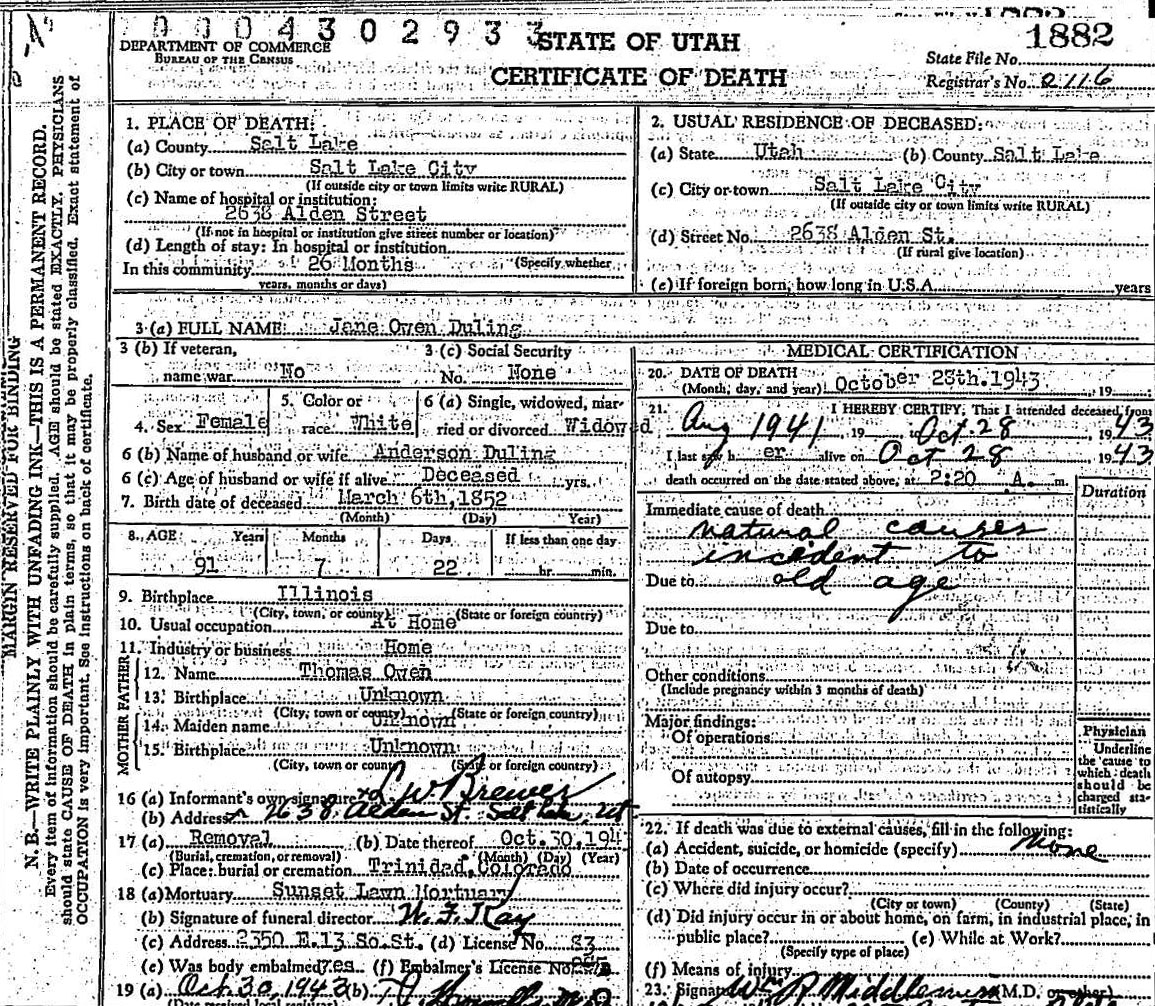 0004302933
DEPARTMENT OF COMMERCE
BUREAU OF THE CENSUS
STATE OF UTAH
CERTIFICATE OF DEATH
1882
State File No.
Registrar's No. 2116
MARGIN RESERVED FOR BINDING
N. B.—WRITE PLAINLY WITH UNFADING INK—THIS IS A PERMANENT RECORD.
Every item of information should be carefully supplied. AGE should be stated EXACTLY. PHYSICIANS
should state CAUSE OF DEATH in plain terms, so that it may be properly classified. Exact statement of
OCCUPATION is very important. See instructions on back of certificate.
1. PLACE OF DEATH:
(a) County Salt Lake
(b) City or town Salt Lake City
(If outside city or town limits write RURAL)
(c) Name of hospital or institution:
2638 Alden Street
(If not in hospital or institution give street number or location)
(d) Length of stay: In hospital or institution
(Specify whether
In this community 26 Months
years, months or days)
2. USUAL RESIDENCE OF DECEASED:
(a) State Utah (b) County Salt Lake
(c) City or town Salt Lake City
(If outside city or town limits write RURAL)
(d) Street No. 2638 Alden St.
(If rural give location)
(e) If foreign born, how long in U.S.A. years
3 (a) FULL NAME: Jane Owen Duling
3 (b) If veteran, 3 (c) Social Security
name war No No. None
4. Sex Female 5. Color or race White 6 (a) Single, widowed, married or divorced Widowed
6 (b) Name of husband or wife Anderson Duling
6 (c) Age of husband or wife if alive Deceased yrs.
7. Birth date of deceased March 6th, 1852
(Month) (Day) Year)
8. AGE: Years Months Days If less than one day
91 7 22 hr. min.
9. Birthplace Illinois
(City, town, or county) (State or foreign country)
10. Usual occupation At Home
11. Industry or business Home
FATHER
12. Name Thomas Owen
13. Birthplace Unknown
(City, town or county) (State or foreign country)
MOTHER
14. Maiden name Unknown
15. Birthplace Unknown
(City, town or county (State or foreign country)
16 (a) Informant's own signature L W Brewer
(b) Address 2638 Alden St. Salt Lake, Ut
17 (a) Removal (b) Date thereof Oct.30,194
(Burial, cremation, or removal) (Month) (Day) (Year)
(c) Place: burial or cremation Trinidad, Colorado
18 (a) Mortuary Sunset Lawn Mortuary
(b) Signature of funeral director W. F. Kay
(c) Address 2350 E.13 So.St. (d) License No. 83
(e) Was body embalmed yes (f) Embalmer's License No.
19 (a) Oct. 30, 1943 (b)
MEDICAL CERTIFICATION
20. DATE OF DEATH
(Month, day, and year) October 28th.1943 19
21. I HEREBY CERTIFY, That I attended deceased from
Aug 1941 19 Oct 28 1943
I last saw h er alive on Oct 28 1943
death occurred on the date stated above, at 2:20 A. m.
Duration
Immediate cause of death
natural causes
incident to
Due to old age
Due to
Other conditions
(Include pregnancy within 3 months of death)
Major findings:
Of operations
Of autopsy
Physician
Underline
the cause to
which death
should be
charged sta-
tistically
22. If death was due to external causes, fill in the following:
(a) Accident, suicide, or homicide (specify) None
(b) Date of occurrence
(c) Where did injury occur?
(City or town) (County) (State)
(d) Did injury occur in or about home, on farm, in industrial place, in
public place? (e) While at Work?
(Specify type of place)
(f) Means of injury
23. Signature Wm R Middlemiss (M.D. or other)